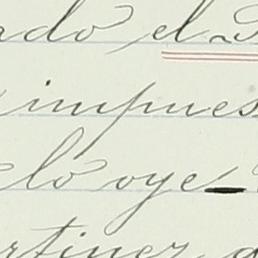 ado el
impues
lo oye
rtinez a